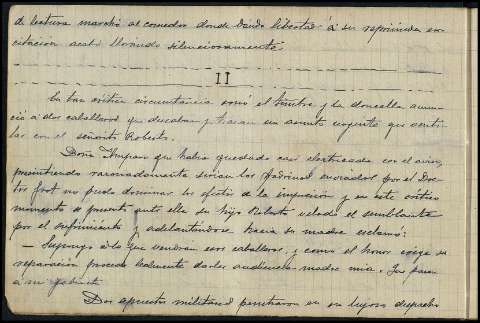 de lectura marchó al comedor donde dando libertad á su reprimida ex-
citación acabó llorando silenciosamente.
II
En tan crítica circunstancia sonó el timbre y la doncella anun-
ció á dos caballeros que deseaban y traían un asunto urgente que venti-
lar con el señorito Roberto.
Doña Amparo que había quedado casi electrizada con el aviso,
presintiendo razonadamente serían los padrinos enviados por el Doc-
tor no pudo dominar los efectos de la impresión y en este crítico
momento se presentó ante ella su hijo Roberto velado el semblante
por el sufrimiento y adelantándose hacia su madre exclamó:
— Supongo á lo que vendrán esos caballeros, y como el honor exige su
reparación procede lealmente darles audiencia madre mia. Que pasen
á mi gabinete.
Dos apuestos militares penetraron en su lujoso despacho